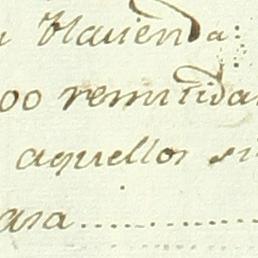 Hacienda:
00 remitida
aquellos si
asa